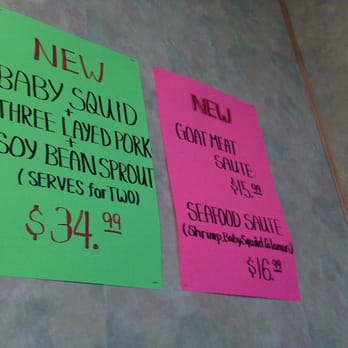 NEW
BABY SQUID
+
THREE LAYED PORK
+
SOY BEAN SPROUT
(SERVES for TWO)
$34.99
NEW
GOAT MEAT
SAUTE
$15.99
SEAFOOD SAUTE
(Shrimp, Baby Squid, Calamari)
$16.99